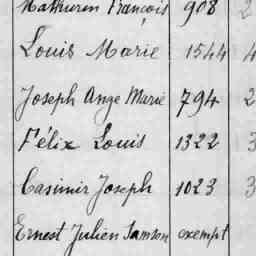 Mathurin François 908 2
Louis Marie 1544 4
Joseph Ange Marie 794 2
Félix Louis 1322 3
Casimir Joseph 1023 3
Ernest Julien Samson exempt